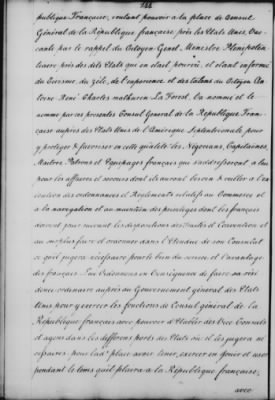 144
publique Française, voulant pouvoir à la place de Consul
Général de la République française près les Etats Unis, Va-
cante par le rappel du Citoyen Genet, Ministre Plénipoten-
tiaire près des dits Etats qui en était pourvu, et étant informé
du Civisme, du zèle, de l'expérience et des talens du Citoyen An-
toine René Charles Mathurin La Forest, l'a nommé et le
nomme par ces présentes Consul Général de la République Fran-
caise auprès des Etats Unis de l'Amérique Septentrionale pour
y protéger & favoriser en cette qualité les Négocians, Capitaines,
Maitres, Patrons et Equipages français qui s'adresseront à lui
pour les affaires et secours dont ils auront besoin & veiller à l'ex-
ecution des ordonnances et Réglements relatifs au Commerce et
à la navigation et au maintien des privileges dont les français
doivent jouir suivant les dispositions des Traités et Conventions et
au surplus faire et ordonner dans l'étendue de son Consulat
ce qu'il jugera nécessaire pour le bien du service et l'avantage
des français. Lui Ordonnons en Conséquence de faire sa rési-
dence ordinaire auprès du Gouvernement général des Etats
Unis pour y exercer les fonctions de Consul général de la
République française avec pouvoir d'Etablir des Vice Consuls
et agens dans les différens ports des Etats où il les jugera né-
cessaires, pour lad. place avoir, tenir, exercer en jouir et user
pendant le tems qu'il plaira à la République française,
avec